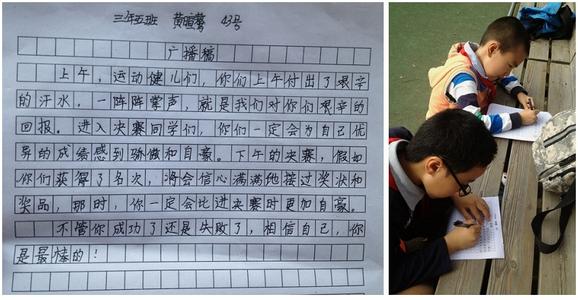 三年五班 黄 43号
广播稿
上午,运动健儿们,你们上午付出了艰辛
的汗水,一阵阵掌声,就是我们对你们艰辛的
回报。进入决赛同学们,你们一定会为自己优
异的成绩感到骄傲和自豪。下午的决赛,假如
你们获得了名次,将会信心满满地接过奖状和
奖品,那时,你一定会比进决赛时更加自豪。
不管你成功了还是失败了,相信自己,你
是最棒的!